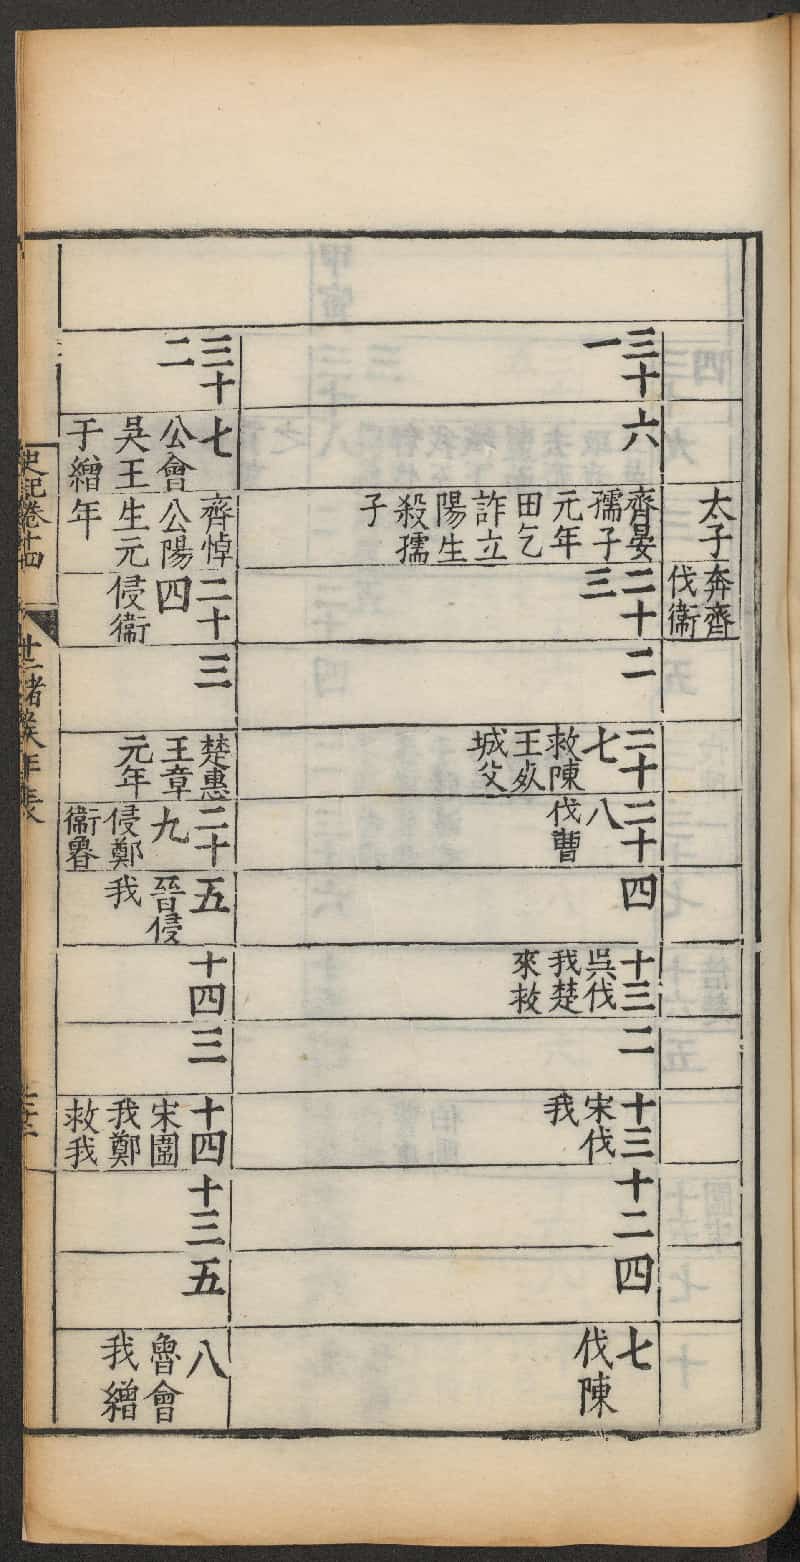 太子
奔齊
伐衞
三十
一
六
齊晏
孺子
元年
田乞
詐立
陽生
殺孺
子
二十
三
二
二十
七
救陳
王𣦸
城父
二十
八
伐曹
四
十三
吳伐
我楚
來救
二
十三
宋伐
我
十二
四
七
伐陳
三十
二
七
公會
吳王
于繒
齊悼
公陽
生元
年
二十
四
侵衞
三
楚惠
王章
元年
二十
九
侵鄭
衞魯
五
晉侵
我
十四
三
十四
宋圍
我鄭
救我
十三
五
八
魯會
我繒
史記卷十四
諸侯年表